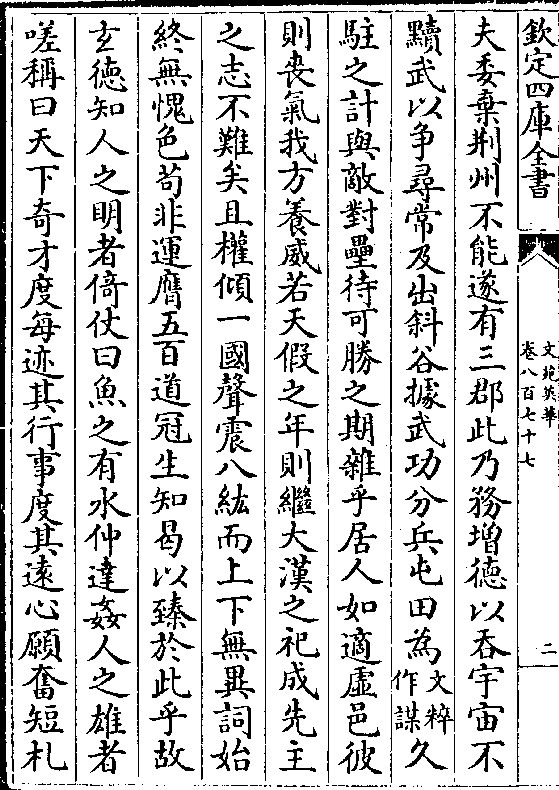 欽定四庫全書
文苑英華
卷八百七十七
二
夫委棄荆州不能遂有三郡此乃務增德以吞宇宙不
黷武以争尋常及出斜谷據武功分兵屯田為文粹作謀久
駐之計與敵對壘待可勝之期雜乎居人如適虛邑彼
則喪氣我方養威若天假之年則繼大漢之祀成先主
之志不難矣且權傾一國聲震八紘而上下無異詞始
終無愧色苟非運膺五百道冠生知曷以臻於此乎故
玄德知人之明者倚仗曰魚之有水仲達姦人之雄者
嗟稱曰天下奇才度每迹其行事度其遠心願奮短札